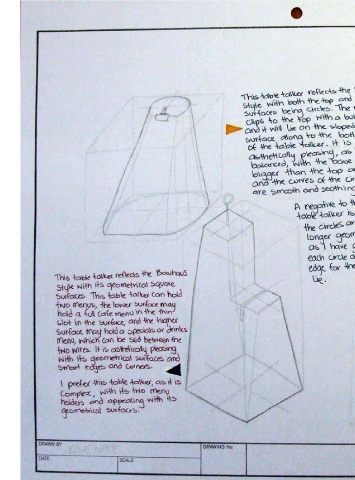 This table talker reflects the
style with both the top and
surfaces being circles. The
clips to the top with a
and it will lie on the sloped
surface along to the
of the table talker. It is
asthetically pleasing, as
balanced, with the base
bigger than the top
and the curves of the
are smooth and soothing
A negative to
table talker
the circles
longer
as I have
each circle
edge for the
This table talker reflects the Bauhaus
style with its geometrical square
surfaces. This table talker can hold
two menus, the lower surface may
hold a full cafe menu in the thin
slot in the surface, and the higher
surface may hold a specials or drinks
menu, which can be slid between the
two wires. It is asthetically pleasing
with its geometrical surfaces and
smart edges and corners.
I prefer this table talker, as it is
complex, with its two menu
holders and appealing with its
geometrical surfaces.
DRAWN BY
DATE
SCALE
DRAWING No.